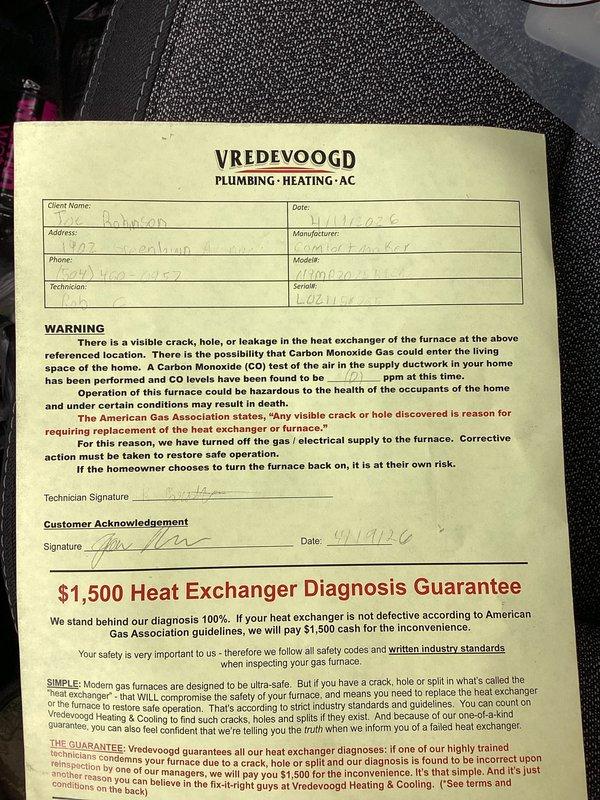 VREDEVOOGD
PLUMBING · HEATING · AC
Client Name: Date:
Joe Robinson
Address: Manufacturer:
1902 Comfortmaker
Phone: Model#:
(504) 460-0957
Technician: Serial#:
Rob C
WARNING
There is a visible crack, hole, or leakage in the heat exchanger of the furnace at the above
referenced location. There is the possibility that Carbon Monoxide Gas could enter the living
space of the home. A Carbon Monoxide (CO) test of the air in the supply ductwork in your home
has been performed and CO levels have been found to be ppm at this time.
Operation of this furnace could be hazardous to the health of the occupants of the home
and under certain conditions may result in death.
The American Gas Association states, “Any visible crack or hole discovered is reason for
requiring replacement of the heat exchanger or furnace.”
For this reason, we have turned off the gas / electrical supply to the furnace. Corrective
action must be taken to restore safe operation.
If the homeowner chooses to turn the furnace back on, it is at their own risk.
Technician Signature
Customer Acknowledgement
Signature Date: 4/19/26
$1,500 Heat Exchanger Diagnosis Guarantee
We stand behind our diagnosis 100%. If your heat exchanger is not defective according to American
Gas Association guidelines, we will pay $1,500 cash for the inconvenience.
Your safety is very important to us - therefore we follow all safety codes and written industry standards
when inspecting your gas furnace.
SIMPLE: Modern gas furnaces are designed to be ultra-safe. But if you have a crack, hole or split in what's called the
"heat exchanger" - that WILL compromise the safety of your furnace, and means you need to replace the heat exchanger
or the furnace to restore safe operation. That's according to strict industry standards and guidelines. You can count on
Vredevoogd Heating & Cooling to find such cracks, holes and splits if they exist. And because of our one-of-a-kind
guarantee, you can also feel confident that we're telling you the truth when we inform you of a failed heat exchanger.
THE GUARANTEE: Vredevoogd guarantees all our heat exchanger diagnoses: if one of our highly trained
technicians condemns your furnace due to a crack, hole or split and our diagnosis is found to be incorrect upon
reinspection by one of our managers, we will pay you $1,500 for the inconvenience. It's that simple. And it's just
another reason you can believe in the fix-it-right guys at Vredevoogd Heating & Cooling. (*See terms and
conditions on the back)